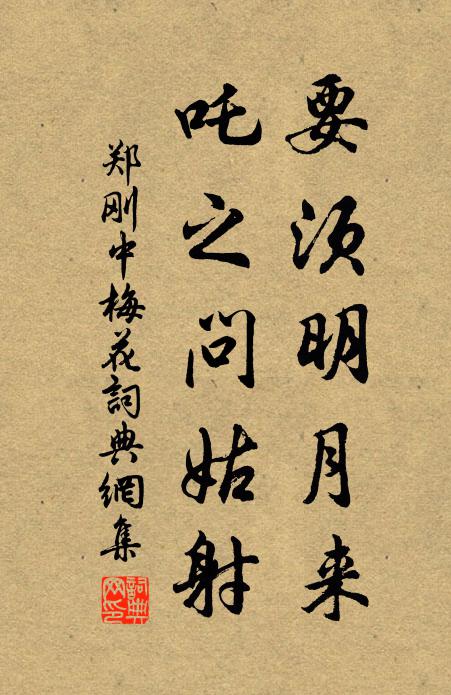 要须明月来
吒之问姑射
郑刚中梅花词典網集
詞典网印